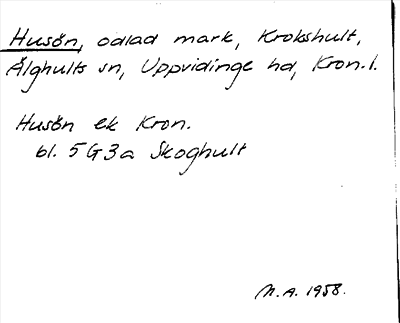 Husön, odlad mark, Krokshult,
Älghults sn, Uppvidinge hd, Kron.l.
Husön ek Kron.
bl. 5G3a Skoghult
M.A. 1958.